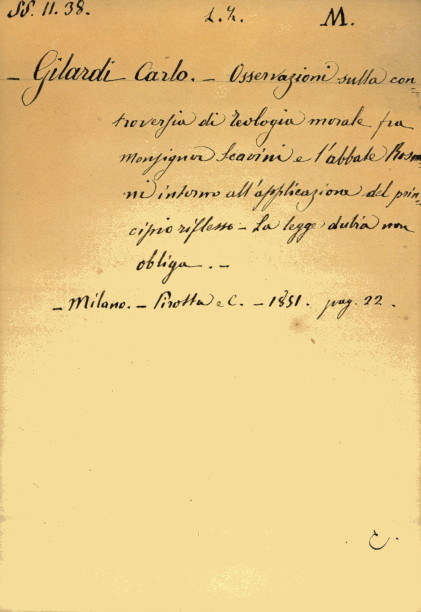 SS. 11. 38. L. h. M.
– Gilardi Carlo. – Osservazioni sulla con=
troversia di Teologia morale fra
Monsignor Scavini e l'abbate Rosmi
ni intorno all'applicazione del prin=
cipio riflesso – La legge dubia non
obliga. –
– Milano. – Pirotta e C. – 1851. pag. 22.